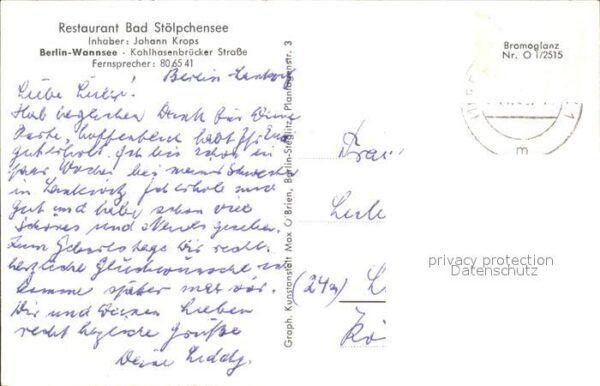 Restaurant Bad Stölpchensee
Inhaber: Johann Krops
Berlin-Wannsee - Kohlhasenbrücker Straße
Fernsprecher: 80 65 41
Berlin
Liebe
Hab herzlichen Dank für Deine
Karte, hoffentlich habt Ihr Euch
gut erholt. Ich bin schon ein
paar Wochen bei meiner Schwester
in Lankwitz. Ich erhole mich
gut und habe schon viel
Schönes und Neues gesehen.
Zum Geburtstage Dir recht
herzliche Glückwünsche ich
komme später mal vor.
Dir und Deinen Lieben
recht herzliche Grüße
Deine
Graph. Kunstanstalt Max O'Brien, Berlin-Steglitz, Plantagenstr. 3
Bromoglanz
Nr. O 1/2515
m
(24a)
privacy protection
Datenschutz